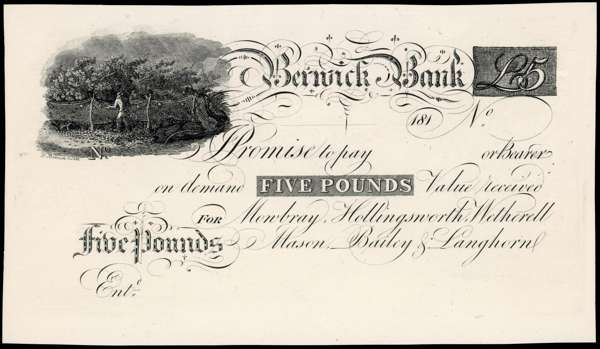 Berwick Bank £5
181 No
No I Promise to pay or Bearer
on demand FIVE POUNDS Value received
FOR Mowbray, Hollingsworth, Wetherell
Five Pounds Mason, Bailey & Langhorn
Entd.